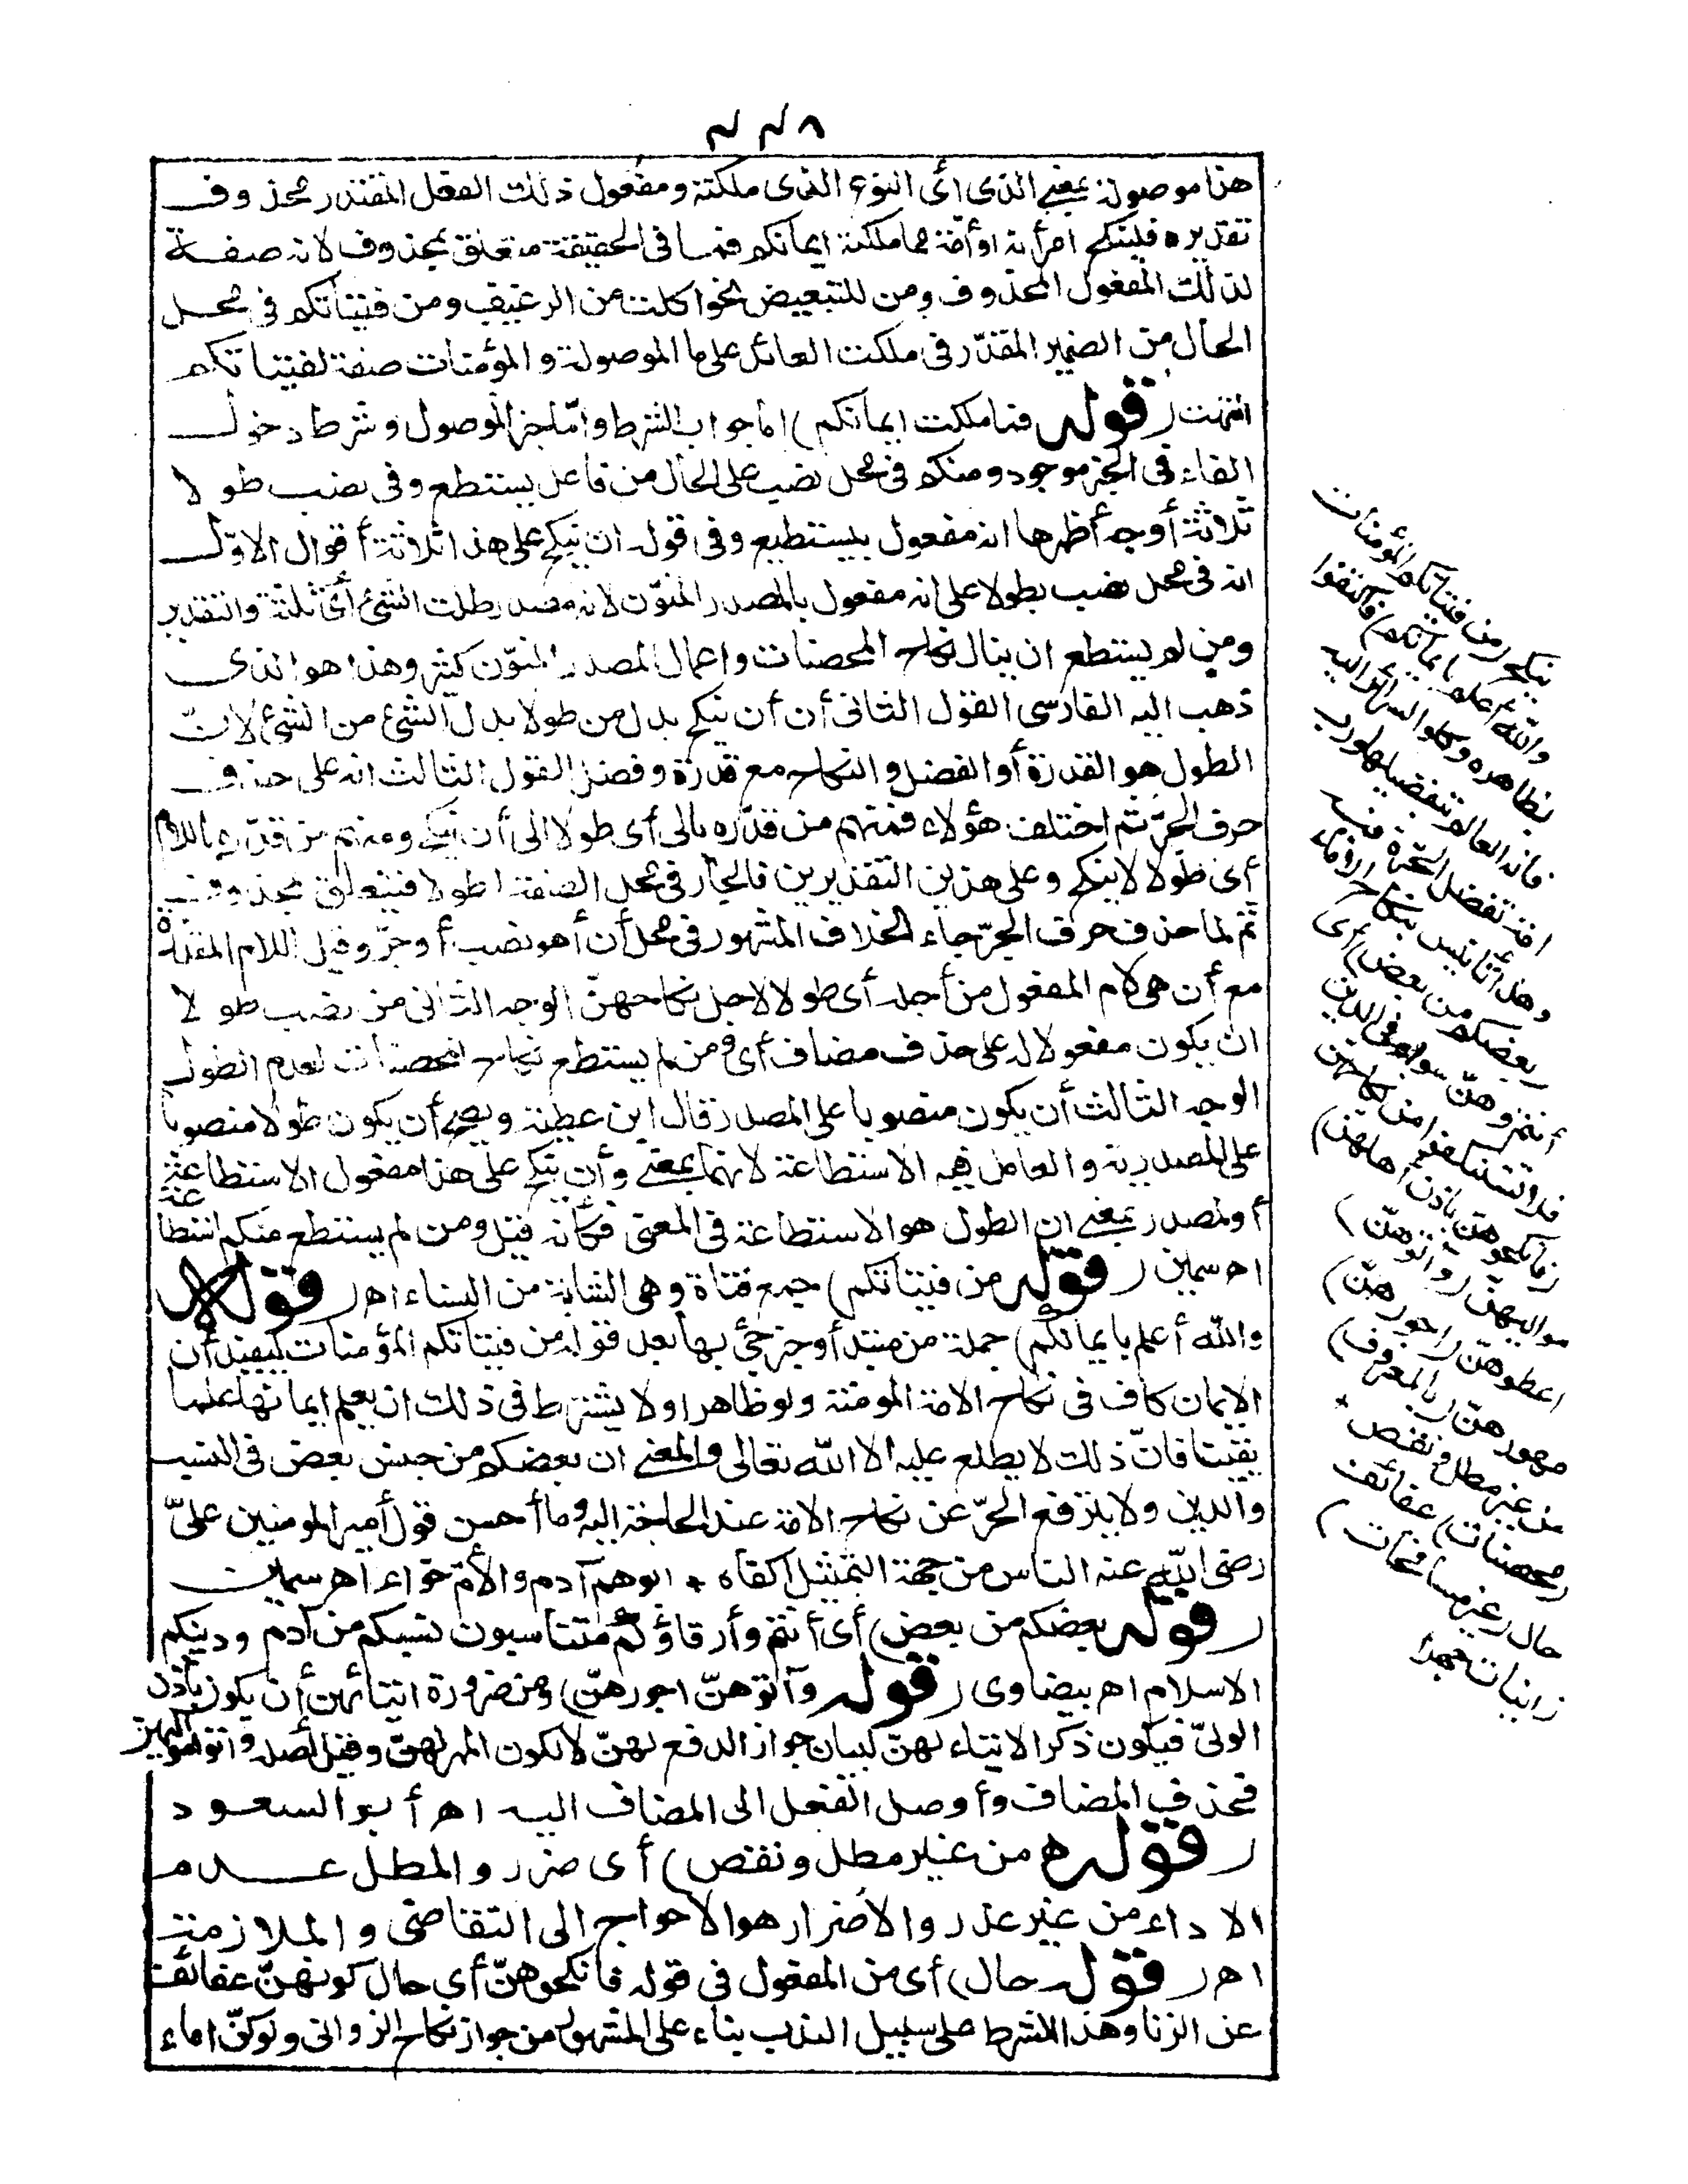 ٣٣٨
هذا موصولة بمعنى الذى أى النوع الذى ملكته ومفعول ذلك الفعل المقدر محذوف
تقديره فلينكح امرأة أو أمة مما ملكته ايمانكم فمما فى الحقيقة متعلق بمحذوف لانه صفة
لذلك المفعول المحذوف ومن للتبعيض نحو اكلت من الرغيف ومن فتياتكم فى محل
الحال من الضمير المقدّر فى ملكت العائد على ما الموصولة والمؤمنات صفة لفتياتكم
انتهت (قوله فمما ملكت ايمانكم) اما جواب الشرط وامّا خبر الموصول وشرط دخول
الفاء فى الخبر موجود ومنكم فى محل نصب على الحال من فاعل يستطع وفى نصب طولا
ثلاثة أوجه أظهرها انه مفعول بيستطيع وفى قوله ان ينكح على هذا ثلاثة أقوال الاوّل
انه فى محل نصب بطولا على انه مفعول بالمصدر المنوّن لانه مصدر طلت الشئ أى نلته والتقدير
ومن لم يستطع ان ينال نكاح المحصنات واعمال المصدر المنوّن كثير وهذا هو الذى
ذهب اليه الفارسى القول الثانى أن أن ينكح بدل من طولا بدل الشئ من الشئ لانّ
الطول هو القدرة أو الفضل والنكاح مع قدرة وفضل القول الثالث انه على حذف
حرف الجرّ ثم اختلف هؤلاء فمنهم من قدّره بالى أى طولا الى أن ينكح ومنهم من قدّره باللام
أى طولا لا ينكح وعلى هذين التقديرين فالجار فى محل الصفة لطولا فيتعلق بمحذوف
ثم لما حذف حرف الجرّ جاء الخلاف المشهور فى محل أن أهو نصب أو جرّ وقيل اللام المقدّرة
مع أن هى لام المفعول من أجله أى طولا لاجل نكاحهنّ الوجه الثانى من نصب طولا
ان يكون مفعولا له على حذف مضاف أى ومن لم يستطع نكاح المحصنات لعدم الطول
الوجه الثالث أن يكون منصوبا على المصدر قال ابن عطية ويصح أن يكون طولا منصوبا
على المصدرية والعامل فيه الاستطاعة لانهما بمعنى وأن ينكح على هذا مفعول الاستطاعة
أو لمصدر بمعنى ان الطول هو الاستطاعة فى المعنى فكأنه قيل ومن لم يستطع منكم استطاعة
اه سمين (قوله من فتياتكم) جمع فتاة وهى الشابة من النساء اه (قوله
والله أعلم بايمانكم) جملة من مبتدأ وخبر جئ بها بعد قوله من فتياتكم المؤمنات ليفيد أن
الايمان كاف فى نكاح الامة المومنة ولو ظاهرا ولا يشترط فى ذلك ان يعلم ايمانها علما
يقينا فانّ ذلك لا يطلع عليه الا الله تعالى والمعنى ان بعضكم من جنس بعض فى النسب
والدين ولا يترفع الحرّ عن نكاح الامة عند الحاجة اليه وما أحسن قول أمير المومنين علىّ
رضى الله عنه الناس من جهة التمثيل اكفاء * ابوهم آدم والأم حواء اه سمين
(قوله بعضكم من بعض) أى أنتم وأرقاؤكم متناسبون نسبكم من آدم ودينكم
الاسلام اه بيضاوى (قوله وآتوهنّ اجورهنّ) ومن ضرورة ايتائهن أن يكون باذن
الولىّ فيكون ذكر الايتاء لهنّ لبيان جواز الدفع لهنّ لا لكون المهر لهنّ وقيل أصله وآتوا مواليهن
فحذف المضاف وأوصل الفعل الى المضاف اليه اه أبو السعود
(قوله من غير مطل ونقص) أى ضرر والمطل عدم
الاداء من غير عذر والأضرار هو الاحواج الى التقاضى والملازمة
اه (قوله حال) أى من المفعول فى قوله فانكحوهنّ أى حال كونهنّ عفائف
عن الزنا وهذا الشرط على سبيل الندب بناء على المشهور من جواز نكاح الزوانى ولو كنّ اماء
ينكح (من فتياتكم المؤمنات
والله أعلم بايمانكم) فاكتفوا
بظاهره وكلوا السرائر اليه
فانه العالم بتفضيلها ورب
امة تفضل الحرة فيه
وهذا تأنيس بنكاح الاماء
(بعضكم من بعض) أى
أنتم وهنّ سواء فى الدين
فلا تستنكفوا من نكاحهن
(فانكحوهنّ باذن أهلهن)
مواليهنّ (وآتوهنّ)
اعطوهنّ (اجورهنّ)
مهورهنّ (بالمعروف)
من غير مطل ونقص
(محصنات) عفائف
حال (غير مسافحات)
زانيات جهرا